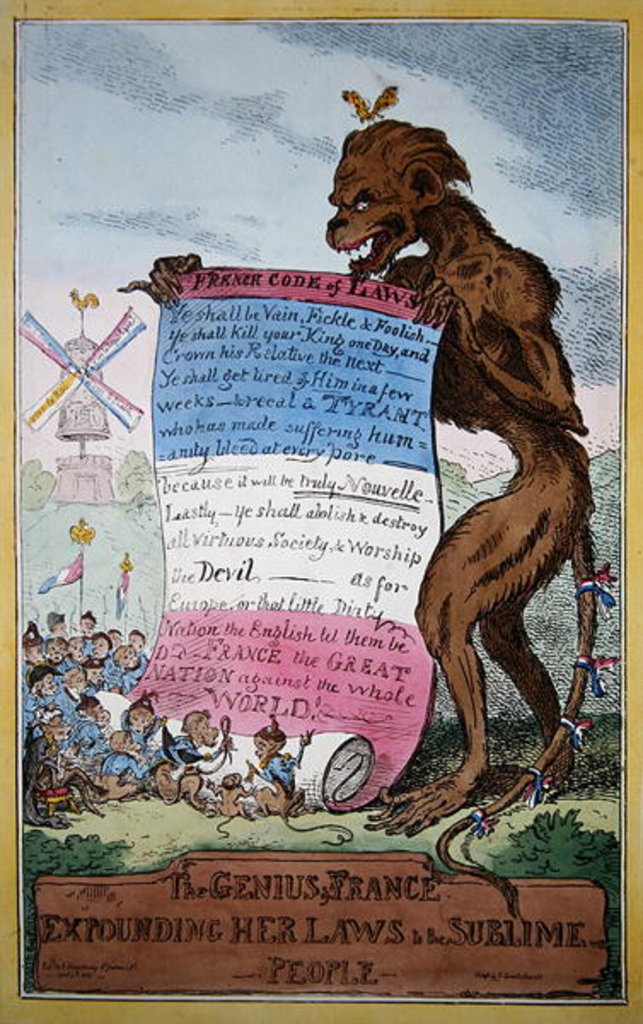 FRENCH CODE of LAWS
Ye shall be Vain, Fickle & Foolish —
Ye shall Kill your King one Day, and
Crown his Relative the next —
Ye shall get tired of Him in a few
weeks — & recal a TYRANT
who has made suffering hum=
=anity bleed at every Pore —
because it will be truly Nouvelle —
Lastly — ye shall abolish & destroy
all virtuous Society, & Worship
the Devil — as for
Europe, or that little Dirty
Nation the English let them be
D—D FRANCE the GREAT
NATION against the whole
WORLD!
The GENIUS of FRANCE
EXPOUNDING HER LAWS to the SUBLIME
PEOPLE —